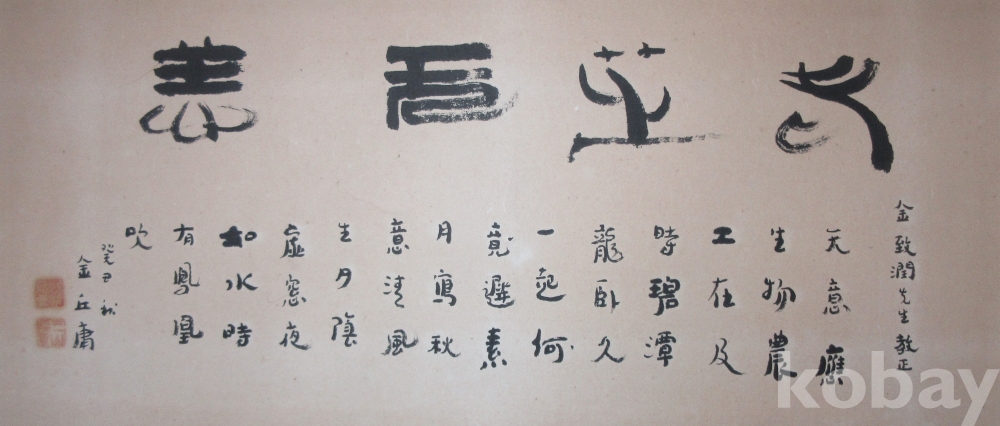 金致潤先生教正
天意應
生物農
工在及
時碧潭
龍臥久
一起何
竟遲素
月寫秋
意清風
生夕陰
虛窓夜
如水時
有鳳凰
吹
癸丑秋
金丘庸
kobay